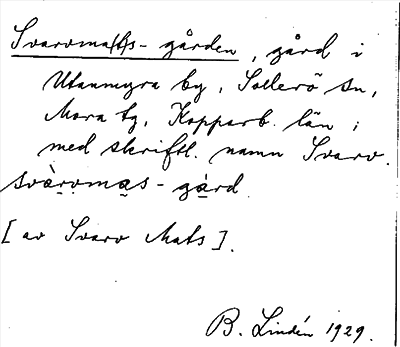 Svarvma(t)s-gården, gård i
Utanmyra by, Sollerö sn,
Mora tg, Kopparb. län;
med skriftl. namn Svarv.
svàrvmas-gård
[av Svarv Mats].
B. Lindén 1929.